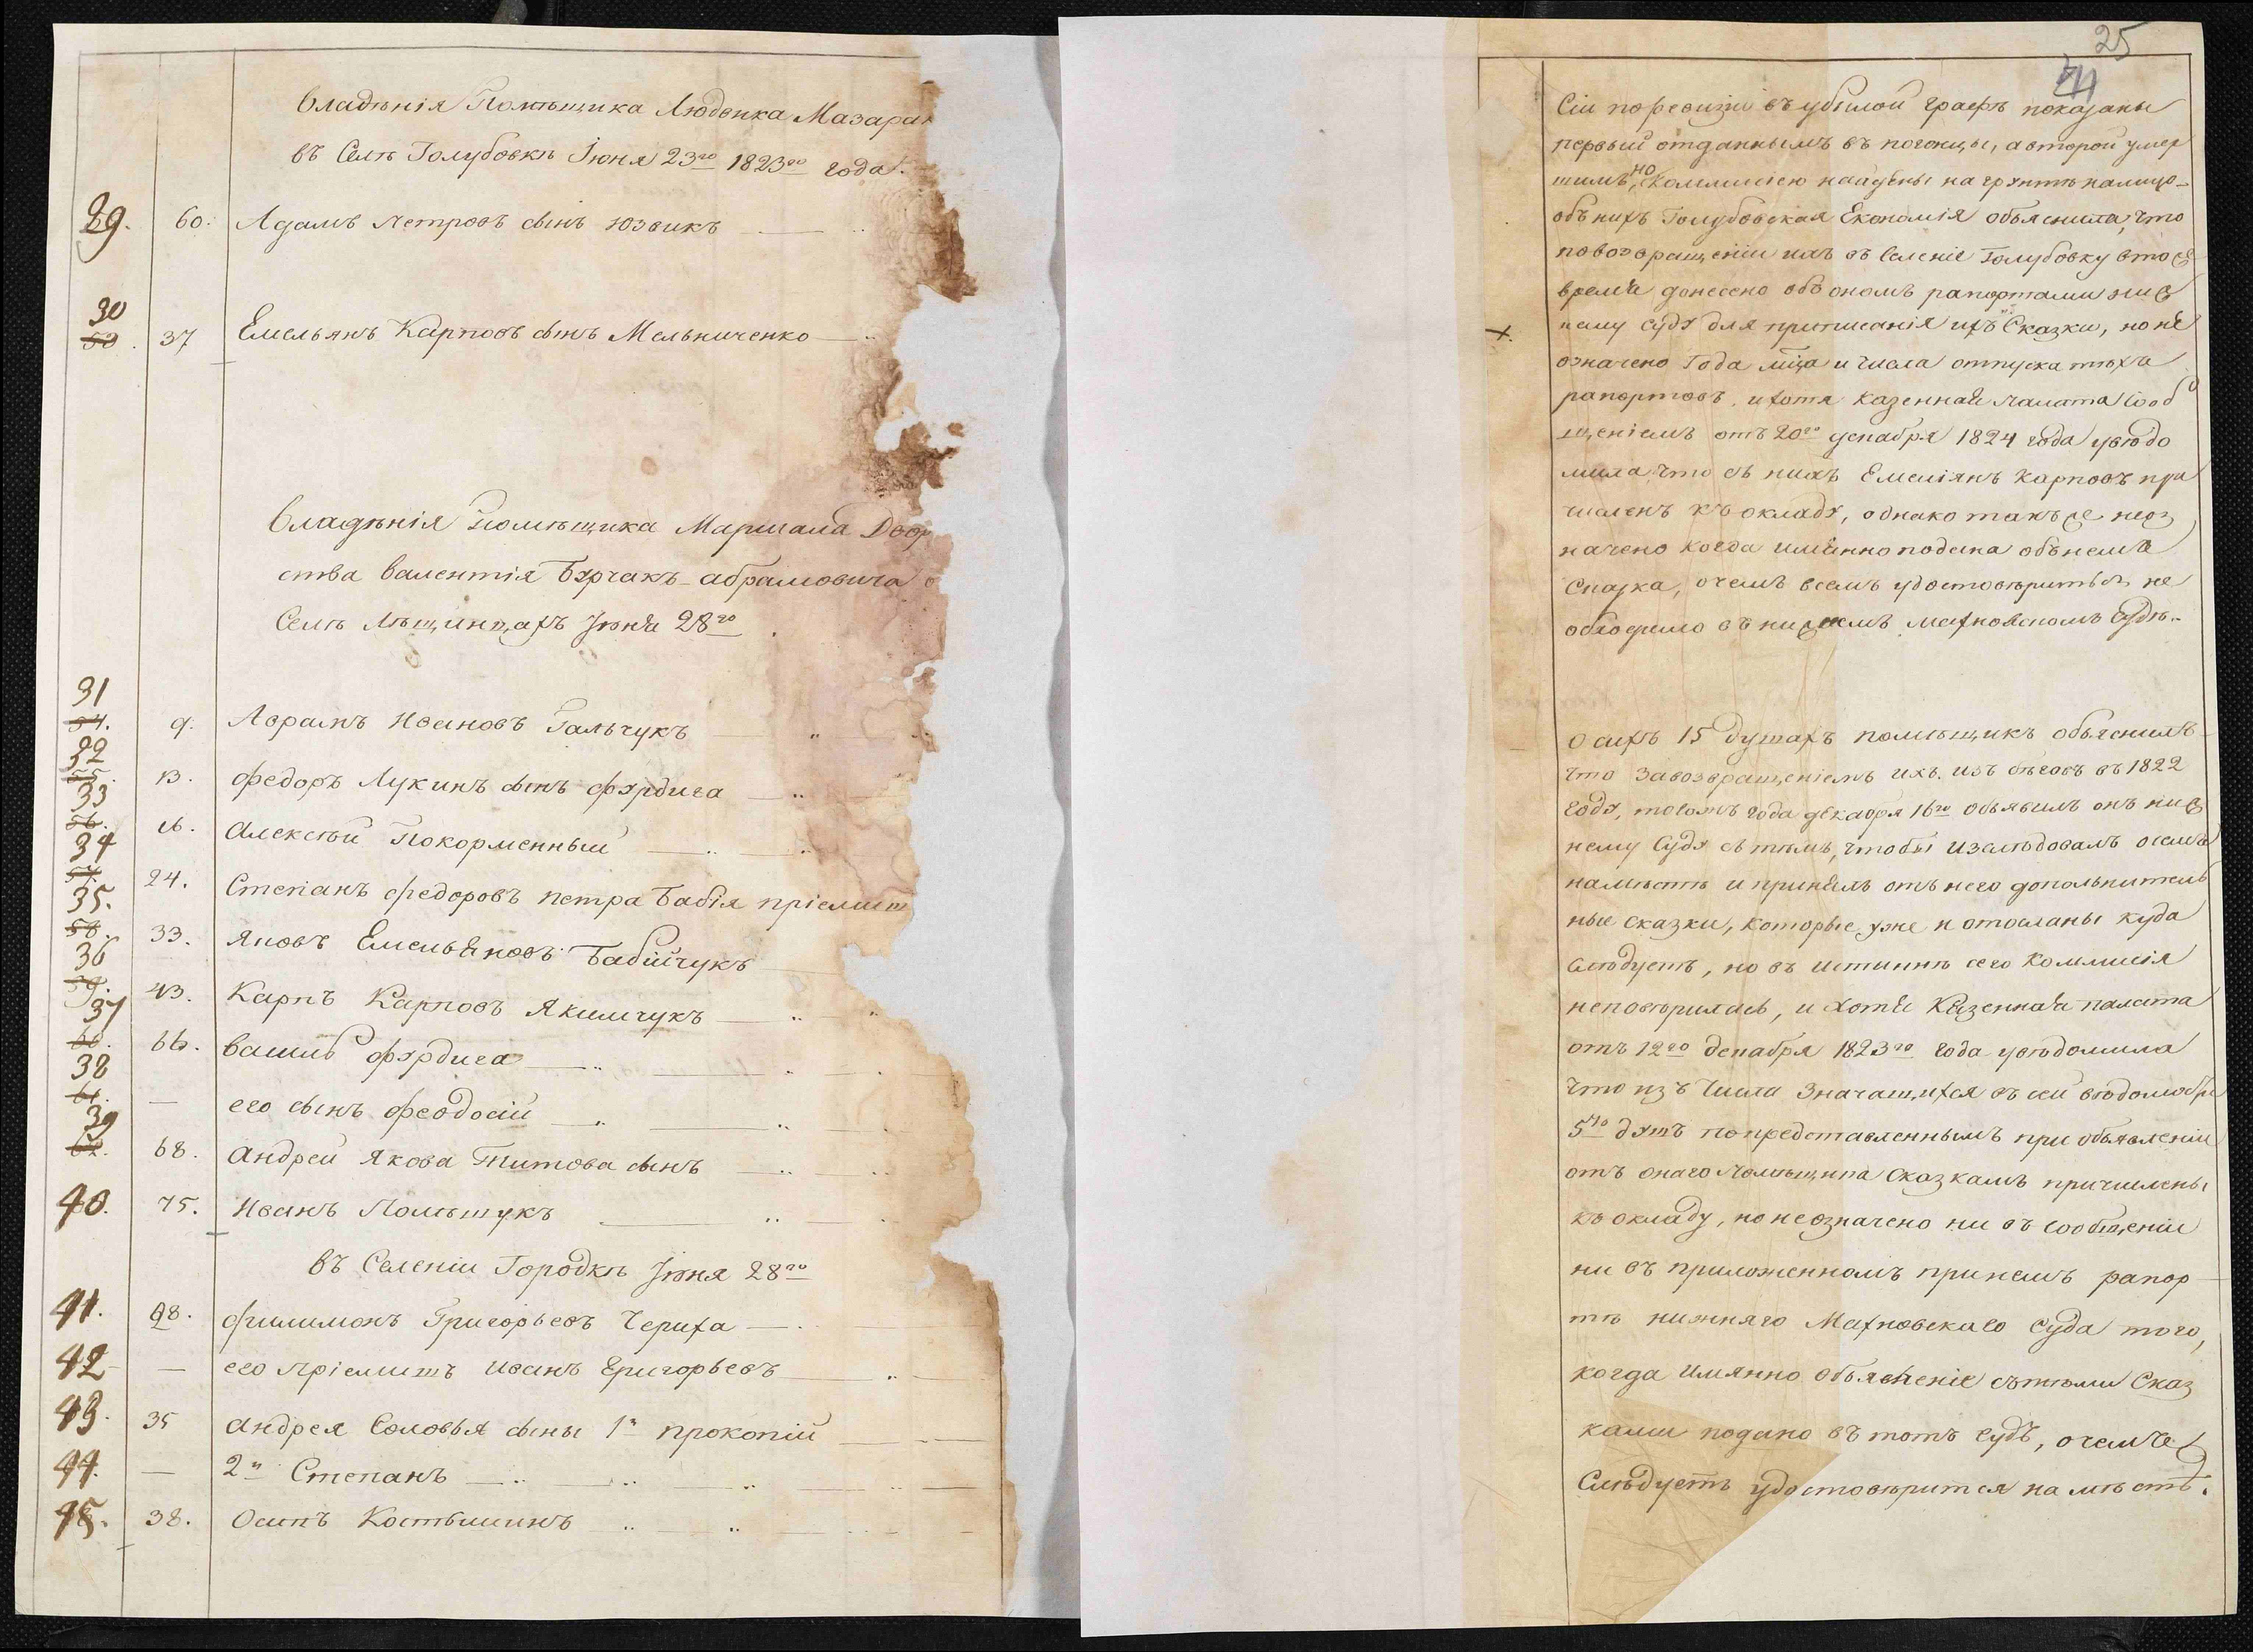 Владѣнія Помѣщика Людвика Мазара
въ Селѣ Голубовкѣ Іюня 23го 1823го года.
29. 60. Адамъ Петровъ сынъ Юзвикъ
30
37 Емельянъ Карповъ сынъ Мельниченко
Владѣнія Помѣщика Маршала Двор
ства Валентія Бурчакъ-Абрамовича
Селѣ Лѣщинцахъ Іюня 28го
31
9. Аврамъ Ивановъ Гальчукъ
32
13. Федоръ Лукинъ сынъ Фурдига
33
16. Алексѣй Покорменный
34
24. Степанъ Федоровъ Петра Бабія пріемыш
35.
33. Яковъ Емельяновъ Бабійчукъ
36
43. Карпъ Карповъ Якимчукъ
37
66. Василь Фурдига
38
— его сынъ Феодосій
39
68. Андрей Якова Титова сынъ
40. 75. Иванъ Полѣщукъ
въ Селеніи Городкѣ Іюня 28го
41. 28. Филимонъ Григорьевъ Череха
42 — его пріемышъ Иванъ Григорьевъ
43. 35 Андрея Соловья сыны 1й Прокопій
44. — 2й Степанъ
45. 38. Осипъ Костюшинъ
25
Сіи по ревизіи въ убылой графѣ показаны
первый отданнымъ въ погонцы, а второй умер
шимъ, но Коммисіею найдены на грунтѣ налицо-
объ нихъ Голубовская Економія объяснила, что
по возвращеніи ихъ въ селеніе Голубовку втоже
время донесено объ ономъ рапортами ниж
нему суду для приписанія ихъ въ Сказки, но не
означено Года мца и числа отпуска тѣхъ
рапортовъ, и хотя Казенная Палата Сооб
щеніемъ отъ 20го декабря 1824 года увѣдо
мила что съ нихъ Емеліянъ Карповъ при
численъ къ окладу, однако также неоз
начено когда имянно подана объ немъ
Сказка, о чемъ всемъ удостовѣриться не
обходимо въ нижнемъ Махновскомъ Судѣ.
О сихъ 15 душахъ помѣщикъ объяснилъ
что за возвращеніемъ ихъ изъ бѣговъ въ 1822
году, тогожъ года декабря 16го объявилъ онъ ниж
нему Суду съ тѣмъ, чтобы изслѣдовалъ о семъ
на мѣстѣ и принялъ отъ него дополнитель
ные сказки, которые уже и отосланы куда
слѣдуетъ, но въ истиннѣ сего Коммисія
неповѣрилась, и хотя Казенная палата
отъ 12го декабря 1823го года увѣдомила
что изъ числа значащихся въ сей вѣдомости
5ть душъ попредставленнымъ при объявленіи
отъ онаго Помѣщика Сказкамъ причислены
къ окладу, но неозначено ни въ сообщеніи
ни въ приложенномъ при немъ рапор
тѣ нижняго Махновскаго Суда того,
когда имянно объясненіе сътѣми Сказ
ками подано въ тотъ судъ, о чемъ
Слѣдуетъ удостовѣрится на мѣстѣ.